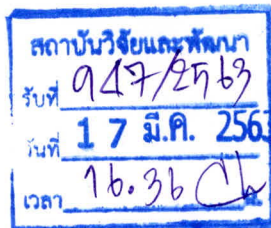 สถาบันวิจัยและพัฒนา
รับที่ 947/2563
วันที่ 17 มี.ค. 2563
เวลา 16.36